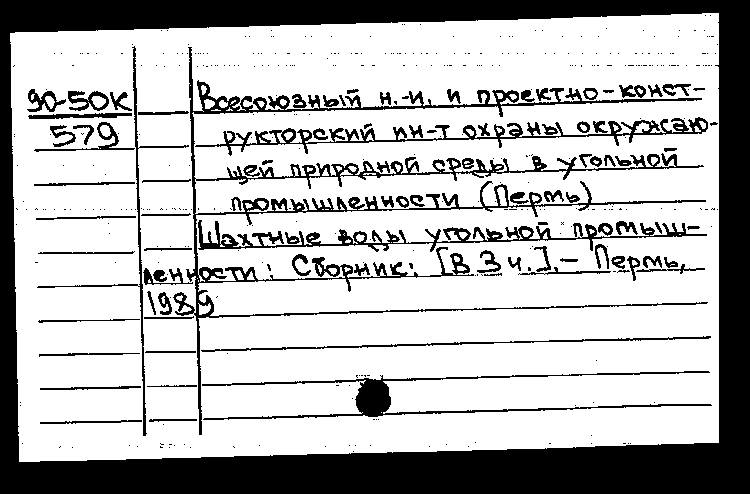 90-50К
579
Всесоюзный н.-и. и проектно-конст-
рукторский ин-т охраны окружаю-
щей природной среды в угольной
промышленности (Пермь)
Шахтные воды угольной промыш-
ленности: Сборник: [В 3 ч.].- Пермь,
1989